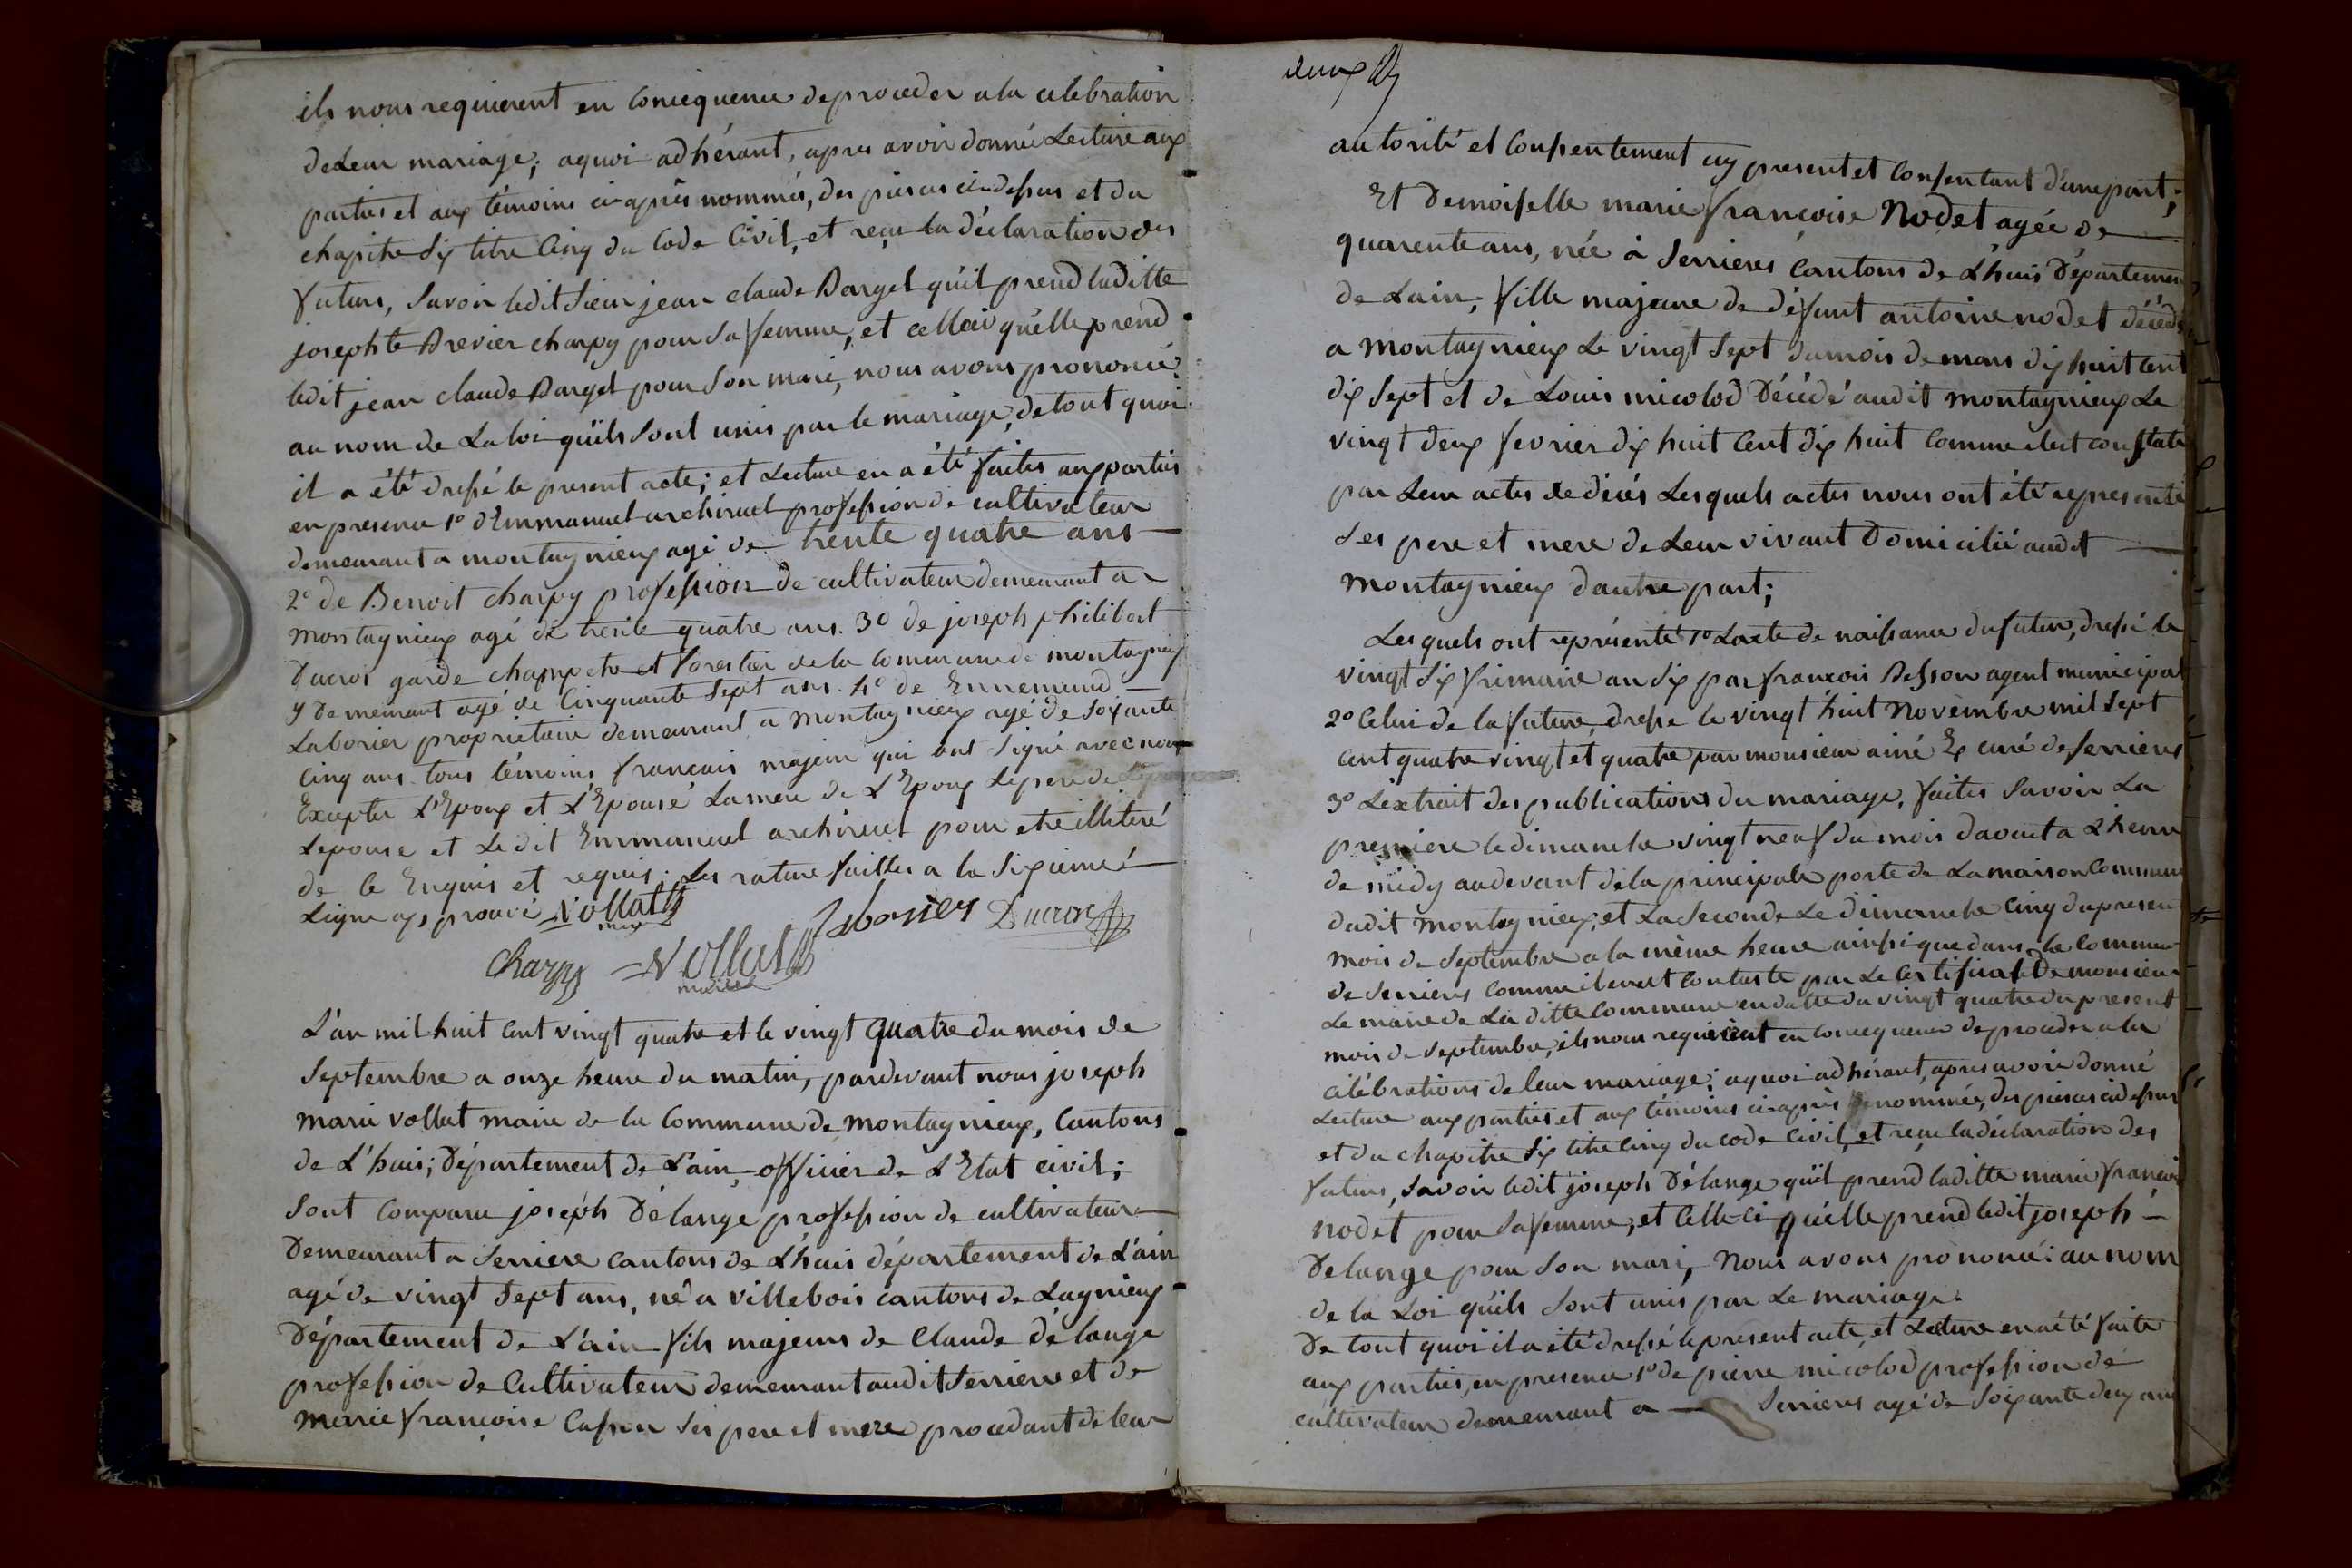 ils nous requierent en consequence de proceder a la celebration
de Leur mariage; aquoi adhérant, apres avoir donné Lecture aux
parties et aux témoins ci-après nommés, des pieces ci-dessus et du
chapitre Six titre Cinq du Code Civil, et reçu la déclaration des
futurs, Savoir ledit Sieur jean claude Darget qu'il prend laditte
josephte Brevier charpy pour Sa femme, et celleci qu'elle prend
ledit jean claude Darget pour Son mari, nous avons prononcé
au nom de La loi qu'ils Sont unis par le mariage, de tout quoi
il a été dressé le present acte; et Lecture en a été faites aux parties
en presence 1º d'Emmanuel archiruel profession de cultivateur
demeurant a montagnieux agé de trente quatre ans
2º de Benoit charpy profession de cultivateur demeurant a
montagnieux agé de trente quatre ans. 3º de joseph philibert
Ducros garde champetre et forestier de la Commune de montagnieux
y demeurant agé de Cinquante Sept ans. 4º de Ennemund
Laborier proprietaire demeurant a montagnieux agé de Soixante
Cinq ans. tous témoins francais majeur qui ont Signé avec nous
Excepter L'Epoux et L'Epouse La mere de L'Epoux Le pere de
Lepouse et Le dit Emmanuel archiruel pour etre illiteré
de Ce Enquis et requis; Les rature faittes a la Sixieme
Ligne approuvé Vollat
maire
Laborier Ducros
Charpy Vollat
maire
L'an mil huit Cent vingt quatre et le vingt quatre du mois de
Septembre a onze heure du matin, pardevant nous joseph
marie vollat maire de la Commune de montagnieux, Cantons
de L'huis; Département de L'ain, officier de L'Etat civil;
Sont Comparu joseph Délange profession de cultivateur
Demeurant a Serriere cantons de L'huis département de L'ain
agé de vingt Sept ans, né a villebois cantons de Lagnieux
Département de L'ain fils majeurs de Claude délange
profession de Cultivateur demeurant audit Serriere et de
marie françoise Ses pere et mere procedant de leur
deux
autorité et Consentement icy present et Consentant d'une part;
Et Demoiselle marie françoise Nodet agée de
quarente ans, née à Serrieres Cantons de L'huis Départemen
de Lain, fille majeure de défunt antoine nodet décédé
a montagnieux Le vingt Sept du mois de mars dix huit Cent
dix Sept et de Louis micolod Décédé audit montagnieux Le
vingt deux fevrier dix huit Cent dix huit Comme il est constaté
par Leur actes de décés Lesquels actes nous ont été representé
Ses pere et mere de Leur vivant Domicilié audit
montagnieux dautre part;
Lesquels ont représenté 1º Lacte de naissance du futur, dressé le
vingt Six frimaire an Six par françois Besson agent municipal
2º Celui de la future, dressé le vingt huit Novembre mil Sept
Cent quatre vingt et quatre par monsieur ainé Ex curé de Serrieres
3º L'extrait des publications du mariage, faites Savoir La
premiere le dimanche vingt neuf du mois daout a L'heure
de midy audevant de la principale porte de La maison Commune
dudit montagnieux, et La Seconde Le dimanche Cinq du presen
mois de Septembre a la même heure ainsi que dans la Commune
de Serrieres Comme il est par Le Certificat de monsieur
Le maire de La ditte Commune en datte du vingt quatre du present
mois de Septembre, ils nous requierent en consequence de proceder a la
célébrations de leur mariage; aquoi adhérant, apres avoir donné
Lecture aux parties et aux témoins ci-après nommés, des pieces cidessus
et du chapitre Six titre Cinq du code Civil, et reçu la déclaration des
futurs, Savoir ledit joseph Délange qu'il prend laditte marie francoi
nodet pour Sa femme, et Celle-Ci qu'elle prend ledit joseph
Delange pour Son mari, Nous avons prononcé: au nom
de la Loi qu'ils Sont unis par Le mariage.
De tout quoi il a été dressé le present acte, et Lecture en a été faite
aux parties, en presence 1º de pierre micolod profession de
cultivateur demeurant a Serrieres agé de Soixante deux ans